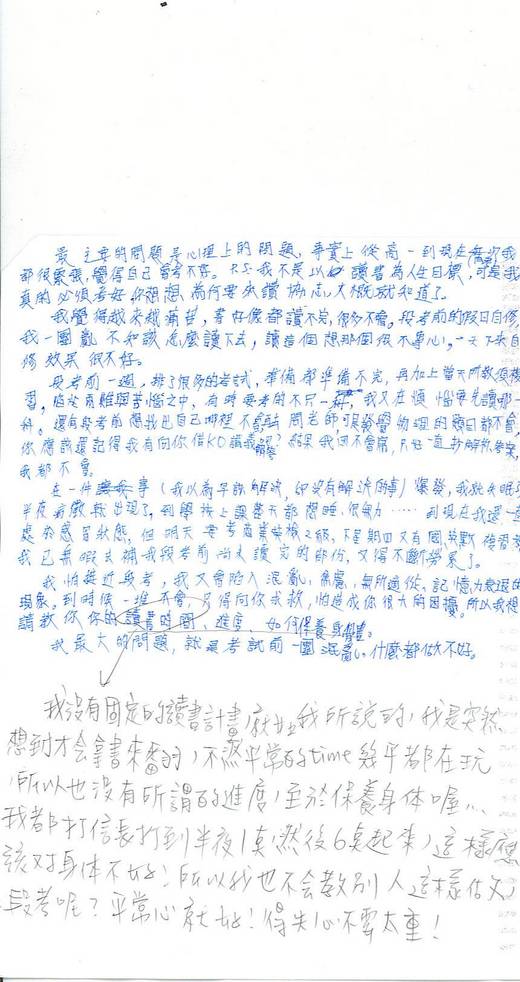 最主要的問題是心理上的問題,事實上從高一到現在無形我
都很緊張,覺得自己會考不好。P.S.我不是以讀書為人生目標,可是我
真的必須考好你想想為何要來讀協志大概就知道了。
我覺得越來越痛苦,書好像都讀不完,很多不會,段考前的假日自修,
我一團亂不知該怎麼讀下去,讀這個想那個很不專心,一天下來自
修效果很不好。
段考前一週,排了很多的考試,準備都準備不完,再加上當天所教沒複
習,陷於兩難與苦惱之中,有時要考的不只一科,我又在煩惱要先讀哪一
科。還有段考前問我出自己哪裡不會 周老師 物理的題目都不會,
你應該還記得我有向你借KO講義 結果我回不會寫,只好一直抄解答
我都不會。
在一件事(我以為早該解決,卻沒有解決的事)爆發,我就失眠
半夜 出現了,到學校上課整天都想睡、很無力……到現在我還一直
處於感冒狀態,但明天要考商業 檢2級,下星期四又有國英數複習考
我已無暇去補我段考前尚未讀完的部份,又得不斷勞累了。
我怕接近段考,我又會陷入混亂、焦慮、無所適從、記憶力衰退的
現象。到時候一堆不會,只得向你求救,怕造成你很大的困擾。所以我想
請教你你的讀書時間、進度、如何保養身體。
我最大的問題,就是考試前一團混亂,什麼都做不好。
我沒有固定的讀書計畫,就如我所說的,我是突然
想到才會拿書來看的,不然平常的time幾乎都在玩
,所以也沒有所謂的進度,至於保養身体喔…
我都打信長打到半夜1點,然後6點起來,這樣應
該對身体不好,所以我也不會教別人這樣做,
段考呢?平常心就好!得失心不要太重!